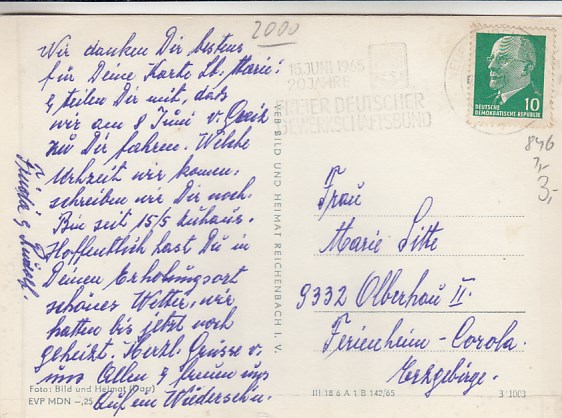 2000
Wir danken Dir bestens
für Deine Karte Lb. Marie!
& teilen Dir mit, daß
wir am 8 Juni v. Greiz
zu Dir fahren. Welche
Uhrzeit wir komen,
schreiben wir Dir noch.
Bin seit 15/5 zuhaus.
Hoffentlich hast Du in
Deinen Erholungsort
schönes Wetter, wir
hatten bis jetzt noch
geheizt. Herzl. Grüsse v.
uns Allen & freun uns
Auf ein Wiedersehn.
Frieda & Rudolf.
Foto: Bild und Heimat (Darr)
EVP MDN -,25
VEB BILD UND HEIMAT REICHENBACH I. V.
15. JUNI 1965
20 JAHRE
FREIER DEUTSCHER
GEWERKSCHAFTSBUND
DEUTSCHE
DEMOKRATISCHE REPUBLIK
10
846
3,-
Frau
Marie Sitte
9332 Olbernhau II.
Ferienheim - Corola.
Erzgebirge.
III 18 6 A 1 B 142/65
3 1003